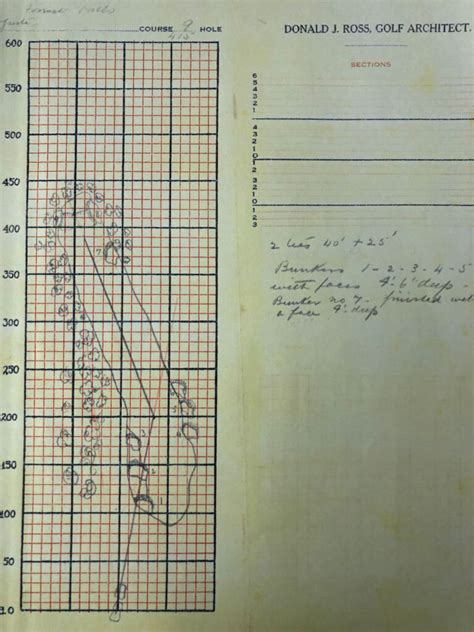 COURSE 9 HOLE
415
DONALD J. ROSS, GOLF ARCHITECT.
SECTIONS
600
550
500
450
400
350
300
250
200
150
100
50
2 tees 40' + 25'
Bunkers 1-2-3-4-5
with faces 4'-6' deep -
Bunker no 7 - finished with
a face 4' deep